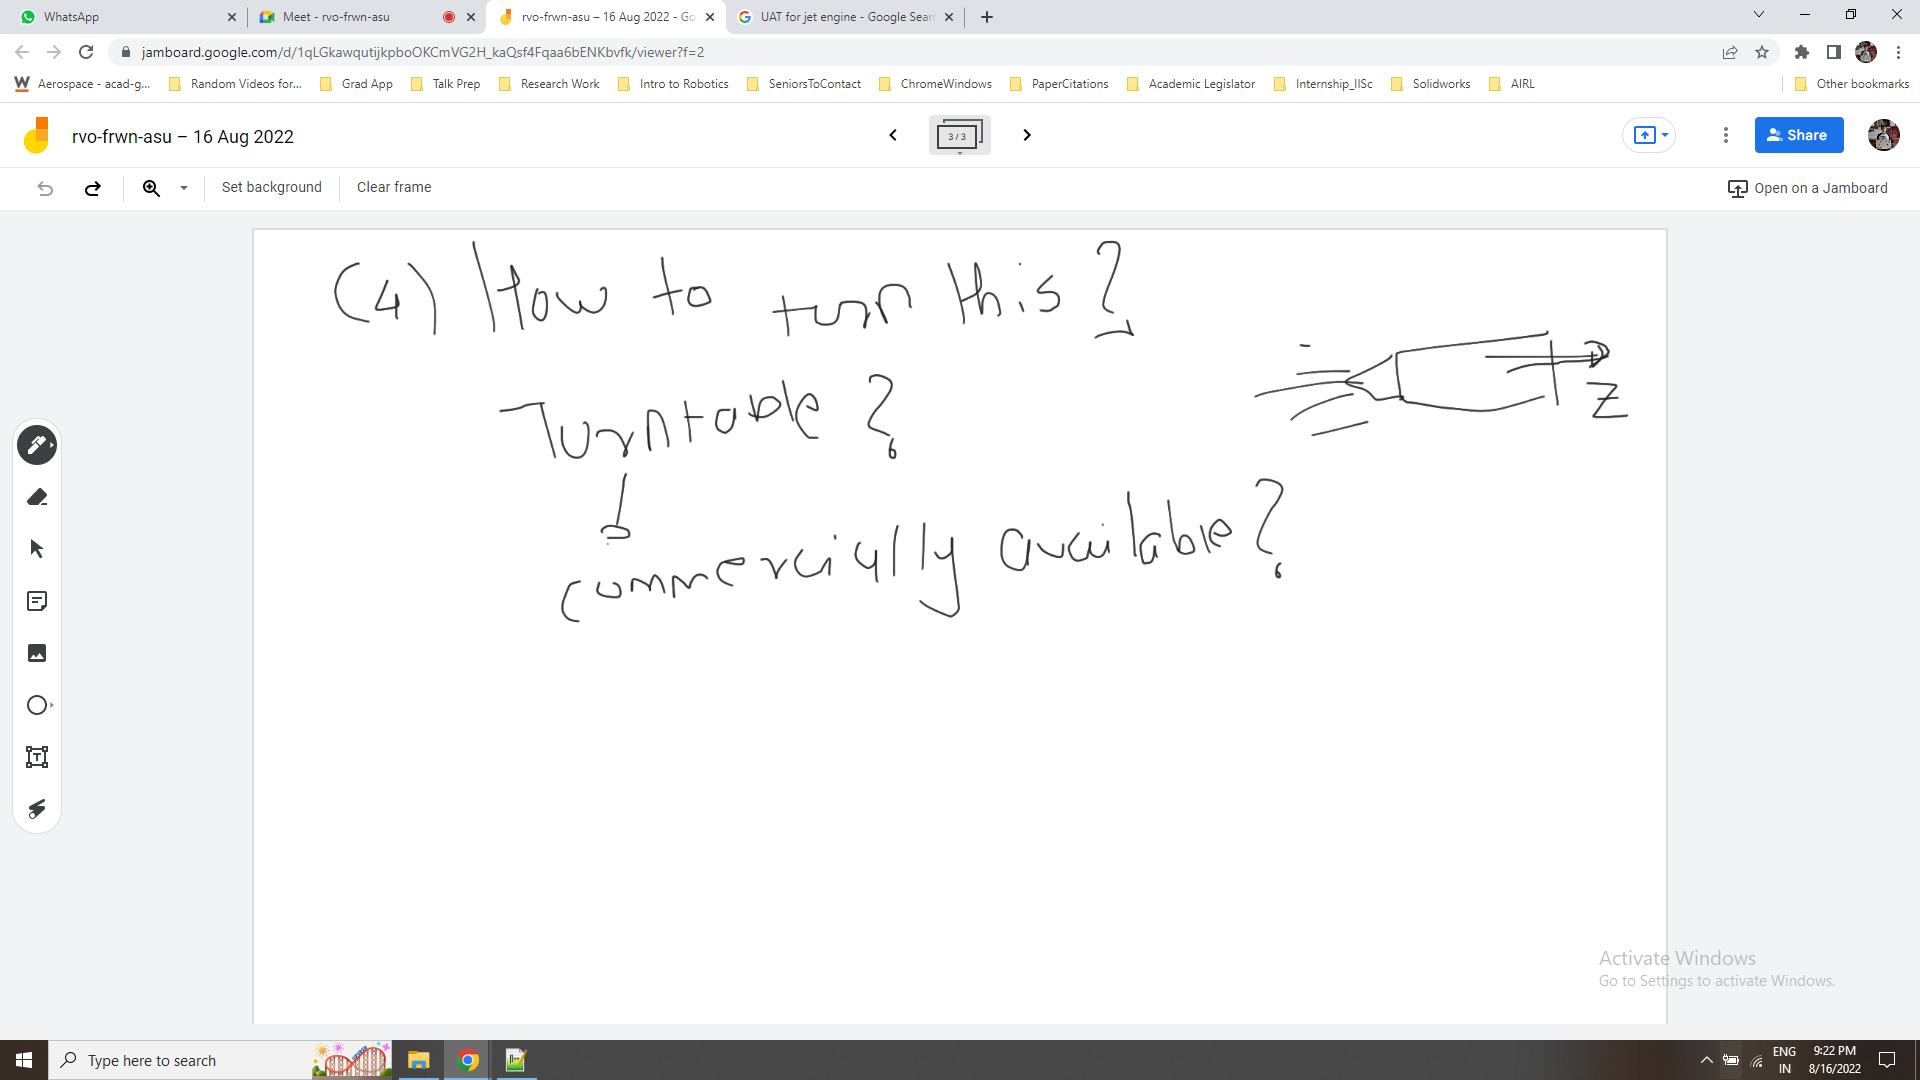 WhatsApp
Meet - rvo-frwn-asu
rvo-frwn-asu – 16 Aug 2022 - Go
UAT for jet engine - Google Sear
jamboard.google.com/d/1qLGkawqutijkpboOKCmVG2H_kaQsf4Fqaa6bENKbvfk/viewer?f=2
Aerospace - acad-g... Random Videos for... Grad App Talk Prep Research Work Intro to Robotics SeniorsToContact ChromeWindows PaperCitations Academic Legislator Internship_IISc Solidworks AIRL Other bookmarks
rvo-frwn-asu – 16 Aug 2022
3 / 3
Share
Set background
Clear frame
Open on a Jamboard
(4) How to turn this?
Turntable?
Z
commercially available?
Activate Windows
Go to Settings to activate Windows.
Type here to search
ENG
IN
9:22 PM
8/16/2022